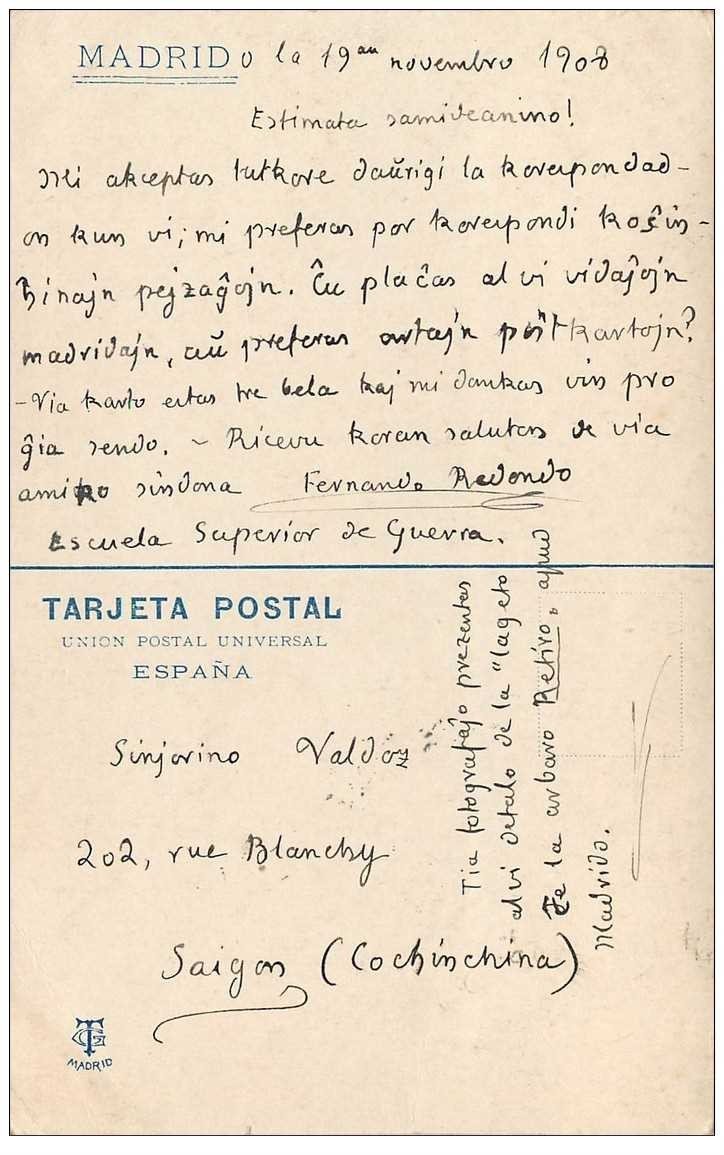 MADRIDo la 19an novembro 1908
Estimata samideanino!
Mi akceptas tutkore daŭrigi la korespondad-
on kun vi; mi preferas por korespondi koĉin-
ĥinajn pejzaĝojn. Ĉu plaĉas al vi vidaĵojn
madridajn, aŭ preferas artajn poŝtkartojn?
-Via karto estas tre bela kaj mi dankas vin pro
ĝia sendo. ~ Ricevu koran saluton de via
amiko sindona Fernando Redondo
Escuela Superior de Guerra.
TARJETA POSTAL
UNION POSTAL UNIVERSAL
ESPAÑA
Sinjorino Valdoz
202, rue Blanchy
Saigon (Cochinchina)
Tia fotografaĵo prezentas
al vi detalo de la "lageto
de la arbaro Retiro, apud
Madrido.
MADRID